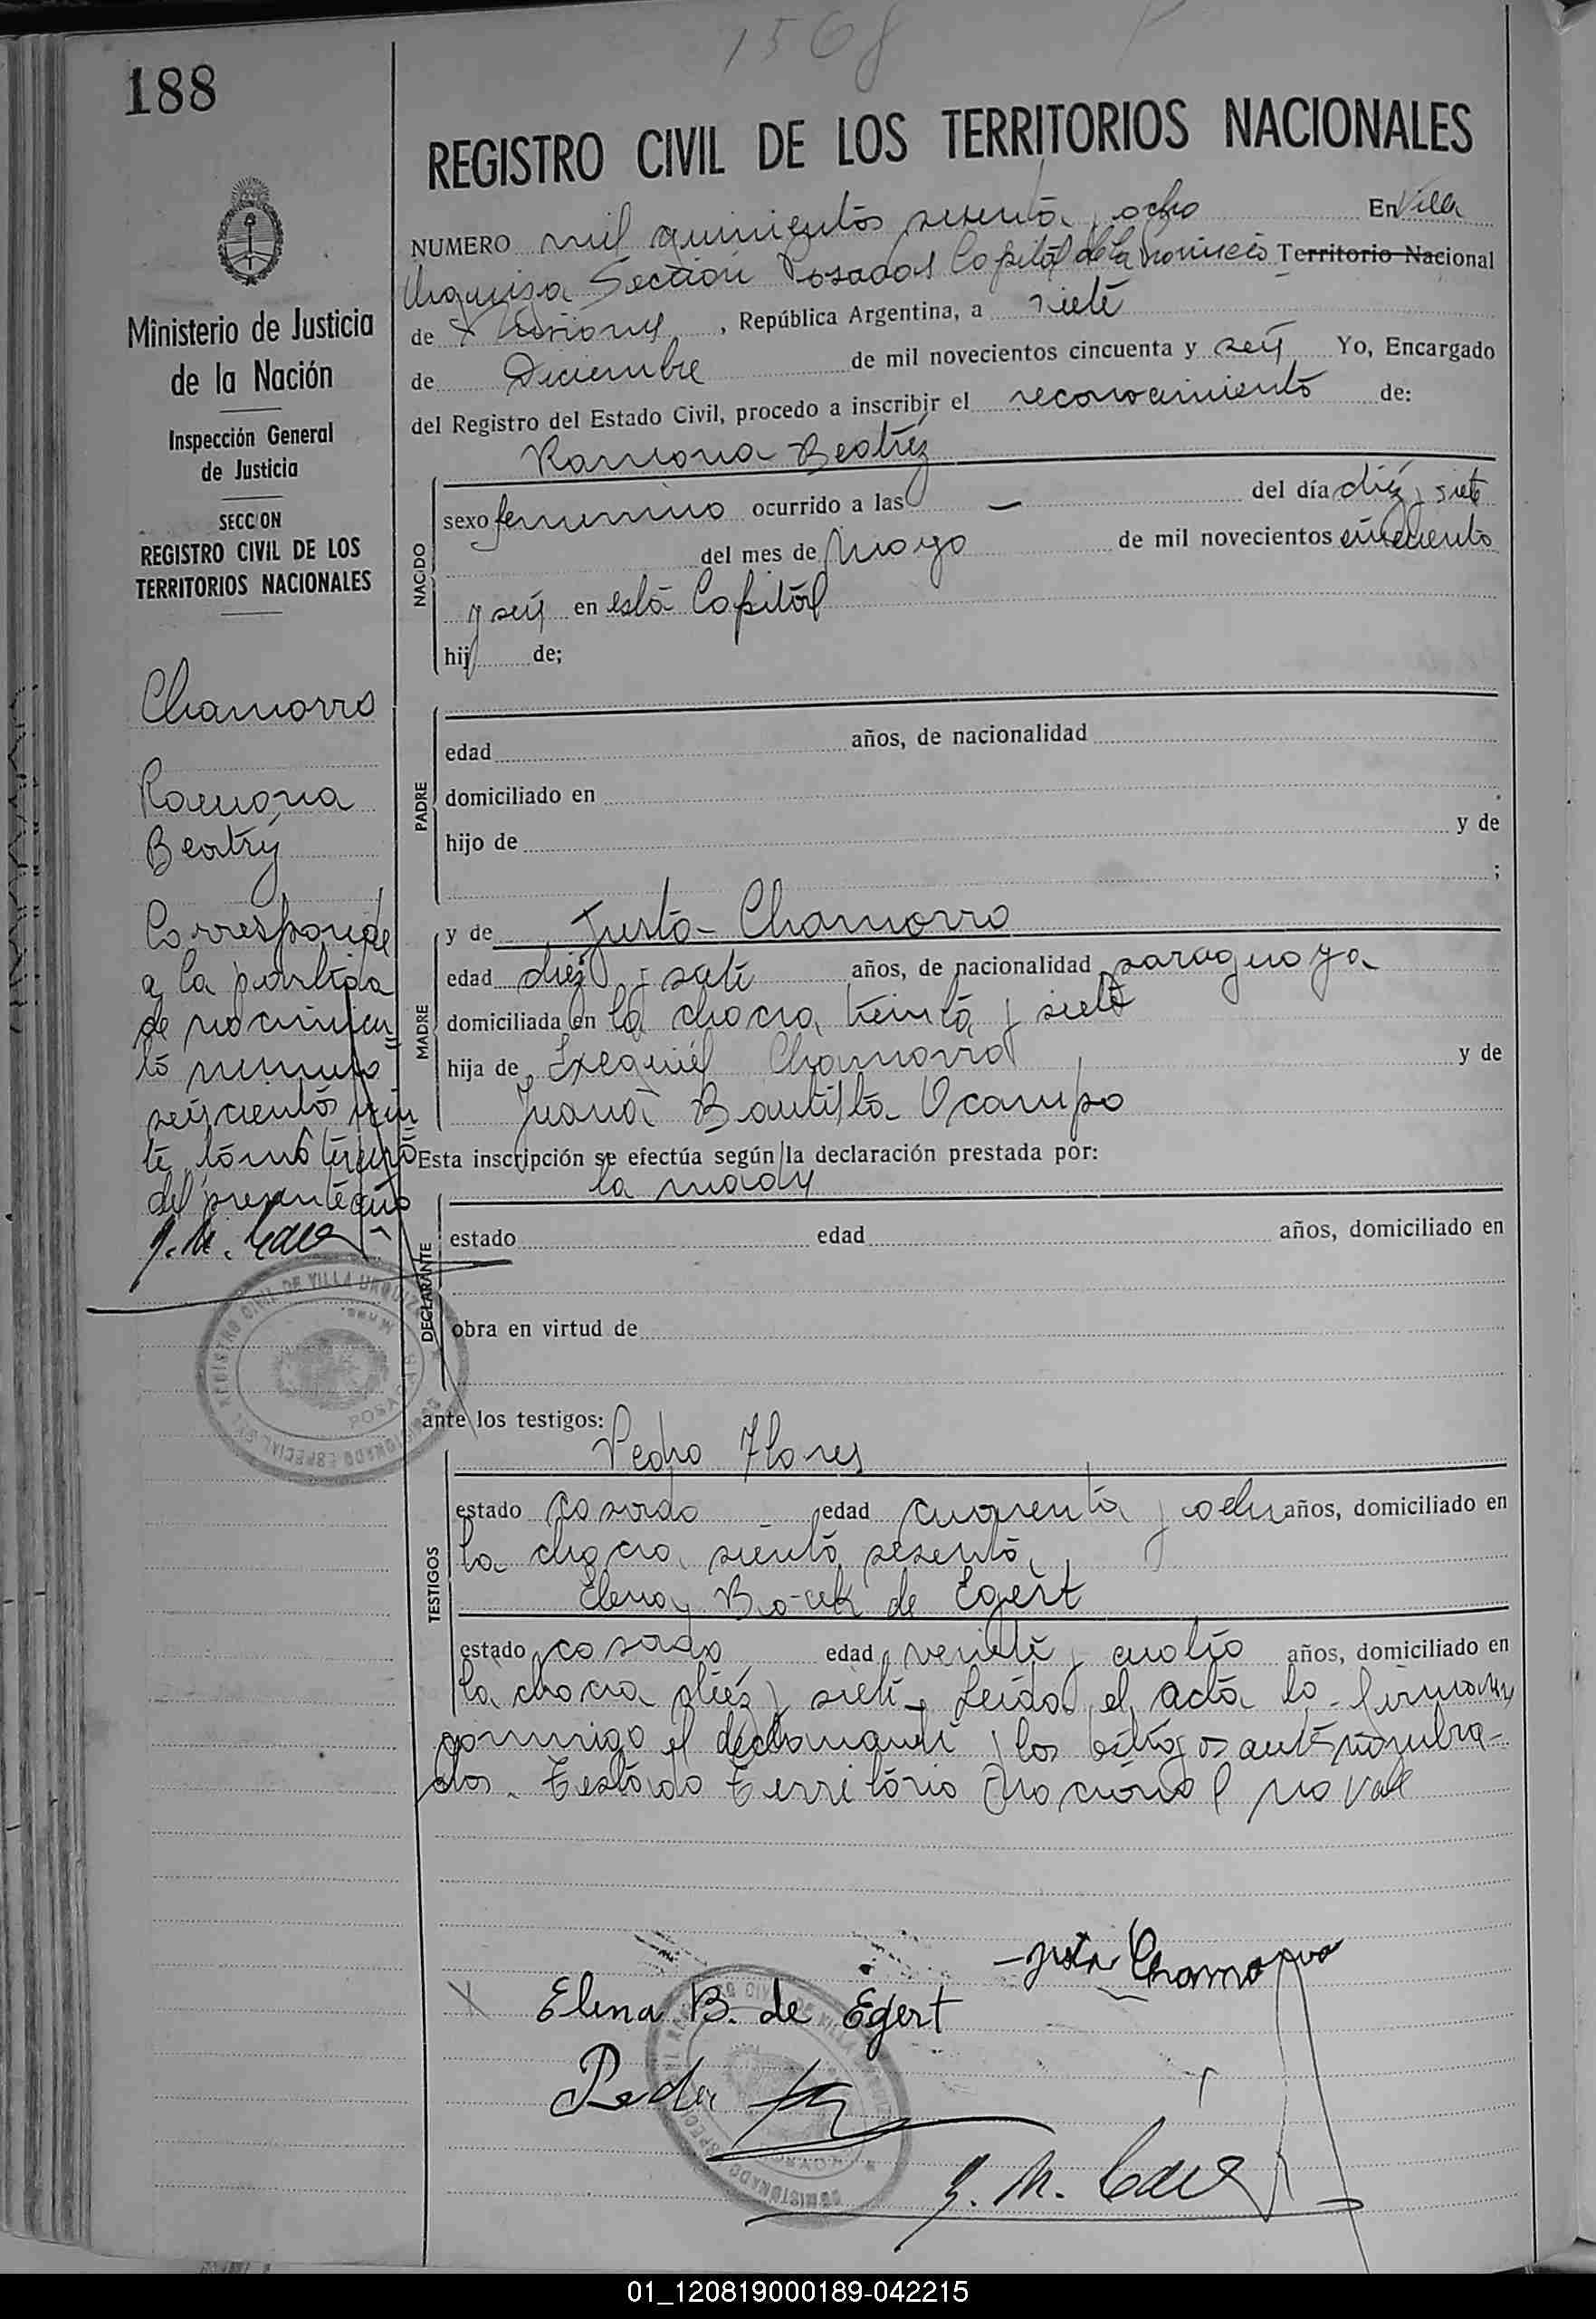 1568
188
REGISTRO CIVIL DE LOS TERRITORIOS NACIONALES
NUMERO mil quinientos sesenta y ocho En Villa
Urquiza Sección Posadas Capital de la Provincia Territorio Nacional
de Misiones, República Argentina, a siete
de Diciembre de mil novecientos cincuenta y seis Yo, Encargado
del Registro del Estado Civil, procedo a inscribir el reconocimiento de:
Ramona Beatriz
NACIDO
sexo femenino ocurrido a las — del día diéz y siete
del mes de Mayo de mil novecientos cincuenta
y seis en esta Capital
hij de;
PADRE
edad años, de nacionalidad
domiciliado en
hijo de y de
;
MADRE
y de Justa Chamorro
edad diéz y siete años, de nacionalidad paraguaya
domiciliada en la chacra treinta y siete
hija de Exequiel Chamorro y de
Juana Bautista Ocampo
Esta inscripción se efectúa según la declaración prestada por:
la madre
DECLARANTE
estado edad años, domiciliado en
obra en virtud de
ante los testigos:
Pedro Flores
TESTIGOS
estado casado edad cuarenta y ocho años, domiciliado en
la chacra siento sesenta
Elena de Egert
estado casada edad veinte y cuatro años, domiciliado en
la chacra diéz y siete. Leida el acta la firman
conmigo el declarante y los testigos antenombra-
dos. Testado Territorio Nacional no vale
Ministerio de Justicia
de la Nación
Inspección General
de Justicia
SECCION
REGISTRO CIVIL DE LOS
TERRITORIOS NACIONALES
Chamorro
Ramona
Beatriz
Corresponde
a la partida
de nacimien
to numero
seiscientos vein
te tomo tercero
del presente año
REGISTRO CIVIL DE VILLA URQUIZA
POSADAS
COMISIONADO ESPECIAL DEL
Justa Chamorro
Elena B. de Egert
Pedro
01_120819000189-042215